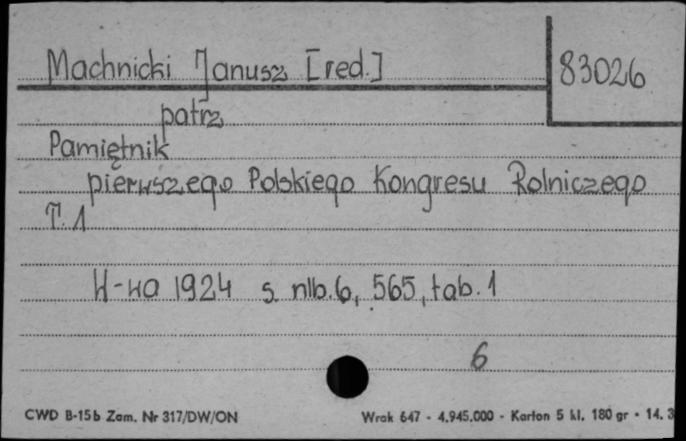 Machnicki Janusz [red.]
83026
patrz
Pamiętnik
pierwszego Polskiego Kongresu Rolniczego
T. 1
W-wa 1924 s. nlb. 6, 565, tab. 1
6
CWD B-15b Zam. Nr 317/DW/ON
Wrak 647 - 4.945.000 - Karton 5 kl. 180 gr - 14.3